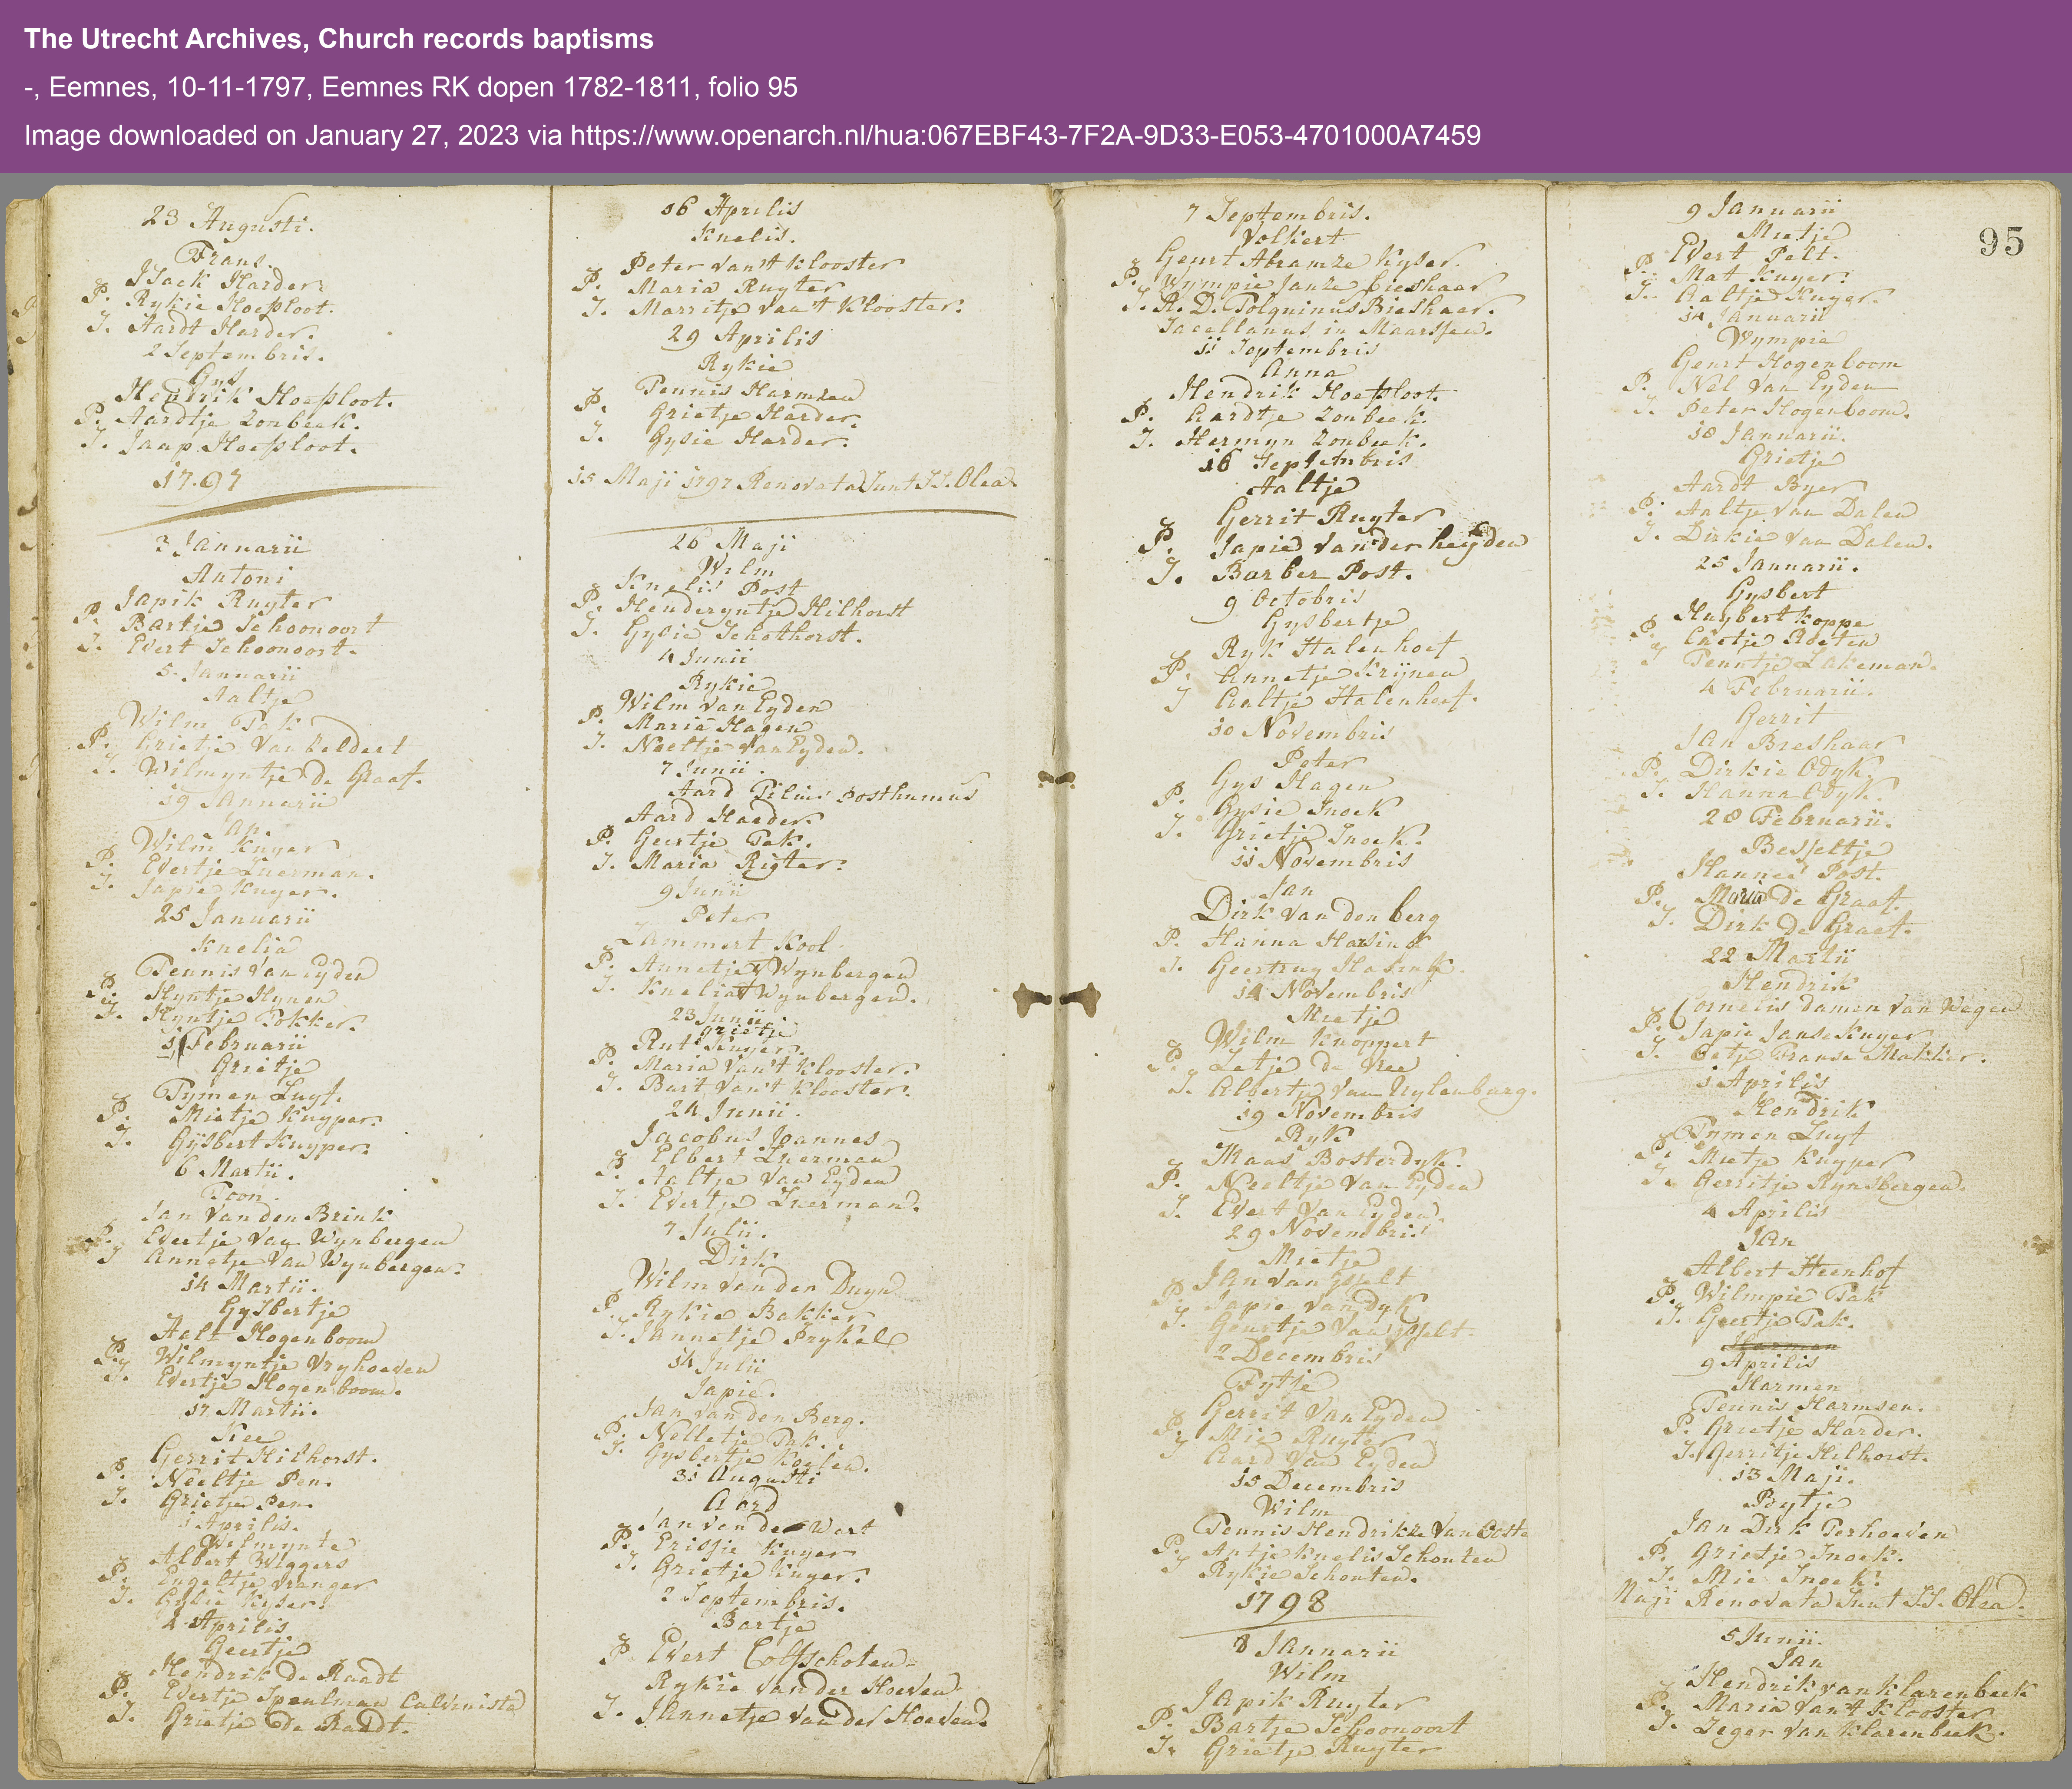 The Utrecht Archives, Church records baptisms
-, Eemnes, 10-11-1797, Eemnes RK dopen 1782-1811, folio 95
Image downloaded on January 27, 2023 via https://www.openarch.nl/hua:067EBF43-7F2A-9D33-E053-4701000A7459
23 Augusti.
Frans.
Isack Harder
P. Rykie Hoefsloot.
S. Aardt Harder.
2 Septembris.
Gys
Hendrik Hoefsloot.
P. Aardtje Zonbeek.
S. Jaap Hoefsloot.
1797
3 Januarii
Antoni
Japik Ruyter
P. Bartje Schoonoort
S. Evert Schoonoort.
5 Januarii
Aaltje
Wilm Tak
P. Grietje Van
S. Wilmyntje de Graaf.
19 Januarii
Jap.
Wilm Kuyer
P. Evertje Luerman.
S. Japie Kuyer.
25 Januarii
Knelia
Teunis Van Eyden
P. Hyntje Hynen
S. Hyntje Fokker.
Februarii
Grietje
Tymen Luyt.
P. Mietje Kuyper.
S. Gysbert Kuyper.
6 Martii.
Toon.
Jan Van den Brink
P. Evertje Van Wynbergen
S. Annetje Van Wynbergen.
14 Martii.
Gysbertje
Aalt Hogenboom
P. Wilmyntje Vryhoeven
S. Evertje Hogenboom.
17 Martii.
Kee
Gerrit Hilhorst.
P. Neeltje Pen.
S. Grietje Pen.
1 Aprilis.
Wilmynte
Albert Wiggers
P. Engeltje Vranger
S. Gysie Kyser.
2 Aprilis
Geertje
Hendrik de Raadt
P. Evertje Speulman Calvinista
S. Grietje de Raadt.
16 Aprilis
Knelis.
Peter Van't Klooster
P. Maria Ruyter
S. Marritje Van't Klooster.
29 Aprilis
Rykie
Teunis Harmzen
P. Grietje Harder.
S. Gysie Harder.
15 Maji 1797 Renovata Sunt SS. Olea
26 Maji
Wilm
Knelis Post
P. Henderyntje Hilhorst
S. Gysie Schothorst.
4 Junii
Rykie
Wilm Van Eyden
P. Maria Hagen
S. Neeltje Van Eyden.
7 Junii.
Aard Filius Posthumus
Aard Harder.
P. Geertje Tak.
S. Maria Rigter.
9 Junii
Peter
Lammert Kool
P. Annetje V Wynbergen
S. Knelia V Wynbergen.
23 Junii
grietje
Rut Kuyer.
P. Maria Van't Klooster.
S. Burt Van't Klooster.
24 Junii.
Jacobus Joannes
Elbert Luerman
P. Aaltje Van Eyden
S. Evertje Luerman.
7 Julii.
Dirk
Wilm Van den Duyn
P. Rykie Bakker
S. Jannetje Prykel
14 Julii
Japie.
Jan Van den Berg.
P. Nelletje Tak.
S. Gysbertje Koelen.
31 Augusti
Aard
Jan van de Wart
P. Erisje Kuyer
S. Grietje Kuyer.
2 Septembris.
Bartje
Evert Colfschoten
P. Rykie Van der Hoeven
S. Jannetje Van der Hoeven.
7 Septembris.
Volkert
Geurt Abramze Kyser.
P. Wympie Janze Bieshaar
S. R. D. Tolquinus Bieshaar.
Sacellanus in Maarssen.
11 Septembris
Anna
Hendrik Hoefsloot.
P. Aardtje Zonbeek.
S. Hermyn Zonbeek.
16 Septembris
Aaltje
Gerrit Ruyter
P. Japie Van der heyden
S. Barber Post.
9 Octobris
Gysbertje
Ryk Stalenhoef
P. Annetje Krijnen
S. Aaltje Stalenhoef.
10 Novembris
Peter
Gys Hagen
P. Gysie Snoek
S. Grietje Snoek.
11 Novembris
Jan
Dirk Van den berg
P. Hanna Hasink
S. Geertruy Hasink.
14 Novembris
Mietje
Wilm Knoppert
P. Zetje de Vree
S. Albertje Van Uylenburg.
19 Novembris
Ryk
Maas Bosterdyk.
P. Neeltje Van Eyden
S. Evert Van Eyden.
29 Novembris
Mietje
Jan Van Ysselt
P. Japie Van Dyk
S. Geurtje Van Ysselt.
2 Decembris
Fytje
Gerrit Van Eyden
P. Mie Ruyter
S. Aard Van Eyden
15 Decembris
Wilm
Teunis Hendrikze Van
P. Antje Knelis Schouten
S. Rykie Schouten.
1798
8 Januarii
Wilm
Japik Ruyter
P. Bartje Schoonoort
S. Grietje Ruyter
95
9 Januarii
Mietje
Evert Pelt.
P. Mat Kuyer.
S. Aaltje Kuyer.
14 Januarii
Wympie
Geurt Hogenboom
P. Nel Van Eyden
S. Peter Hogenboom.
18 Januarii.
Grietje
Aardt Byer
P. Aaltje Van Dalen
S. Dirkie Van Dalen.
25 Januarii.
Gysbert
Huybert Koppe
P. Roeten
S. Teuntje Lakeman.
4 Februarii.
Gerrit
Jan Breshaar
P. Dirkie Odyk
S. Hanna Odyk.
28 Februarii.
Besseltje
Hannes Post.
P. Maria de Graaf.
S. Dirk de Graef.
22 Martii
Hendrik
Cornelis damen Van Wegen
P. Japie Janse Kuyer
S. Franse Makker.
1 Aprilis
Hendrik
Tymen Luyt
P. Mietje Kuyper
S. Gerritje Rynsbergen.
4 Aprilis
Jan
Albert Steenhof
P. Wilmpie Tak
S. Geertje Tak.
Harmen
9 Aprilis
Harmen
Teunis Harmsen.
P. Grietje Harder.
S. Gerritje Hilhorst.
13 Maji.
Bytje
Jan Dirk Terhoeven
P. Grietje Snoek.
S. Mie Snoek.
Maji Renovata Sunt SS. Olea.
5 Junii.
Jan
Hendrik van Klarenbeek
P. Maria Van't Klooster
S. Zeger Van Klarenbeek.